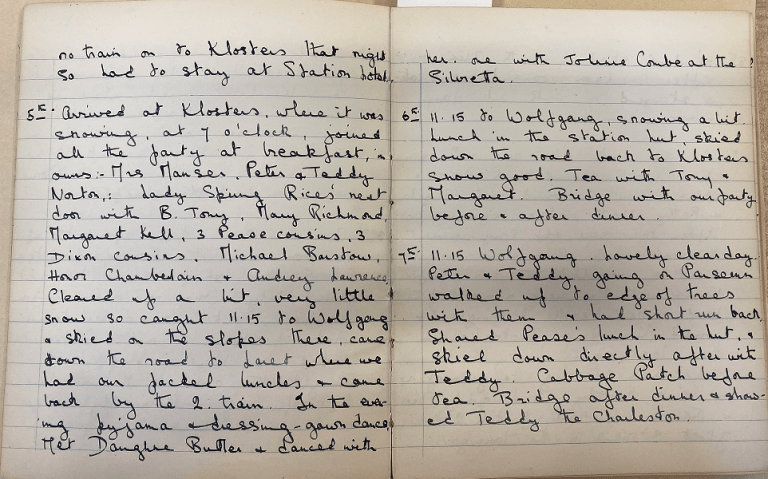 no train on to Klosters that night
so had to stay at Station hotel.
5th Arrived at Klosters, where it was
snowing, at 7 o'clock, joined
all the party at breakfast, in
ours:- Mrs Manser, Peter & Teddy
Norton,: Lady Spring Rice's next
door with B. Tony, Mary Richmond,
Margaret Kell, 3 Pease cousins, 3
Dixon cousins, Michael Barstow,
Honor Chamberlain & Audrey Lawrence.
Cleared up a bit, very little
snow so caught 11.15 to Wolfgang
& skied on the slopes there, came
down the road to Laret where we
had our packed lunches & came
back by the 2. train. In the even-
ing pyjama & dressing-gown dance.
Met Daughne Butler & danced with
her. one with Johnie Combe at the
Silvretta.
6th 11.15 to Wolfgang, snowing a bit.
Lunch in the station hut, skied
down the road back to Klosters
snow good. Tea with Tony &
Margaret. Bridge with our party
before & after dinner.
7th 11.15 Wolfgang. Lovely clear day.
Peter & Teddy going on Parsenn
walked up to edge of trees
with them & had short run back.
Shared Pease's lunch in the hut, &
skied down directly after with
Teddy. Cabbage Patch before
tea. Bridge after dinner & show-
ed Teddy the Charleston.